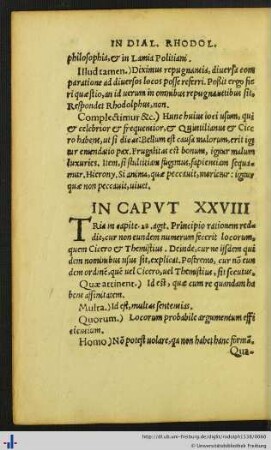 IN DIAL. RHODOL.
philosophis, & in Lamia Politiani.
Illud tamen.) Diximus repugnantia, diuersa com
paratione ad diuersos locos posse referri. Possit ergo fie
ri quæstio, an id uerum in omnibus repugnantibus sit.
Respondet Rhodolphus, non.
Complectimur &c.) Hunc huius loci usum, qui
& celebrior & frequentior, & Quintilianus & Cice
ro habent, ut si dicas: Bellum est causa malorum, erit igi
tur emendatio pax. Frugalitas est bonum, igitur malum
luxuries. Item, si stultitiam fugimus, sapientiam sequa-
mur. Hierony. Si anima, quæ peccauit, morietur: igitur
quæ non peccauit, uiuet.
IN CAPVT XXVIII
TRia in capite 28. agit. Principio rationem red-
dit, cur non eundem numerum fecerit locorum,
quem Cicero & Themistius. Deinde, cur non ijsdem qui
dem nominibus usus sit, explicat. Postremo, cur nõ eun
dem ordinẽ, quẽ uel Cicero, uel Themistius, sit secutus.
Quæ attinent.) Id est, quæ cum re quadam ha
bent affinitatem.
Multa.) Id est, multas sententias.
Quorum.) Locorum probabile argumentum effi
cientium.
Homo) Nõ potest uolare, qa non habet hanc formã.
Qua-
http://dl.ub.uni-freiburg.de/diglit/rudolph1538/0060
© Universitätsbibliothek Freiburg